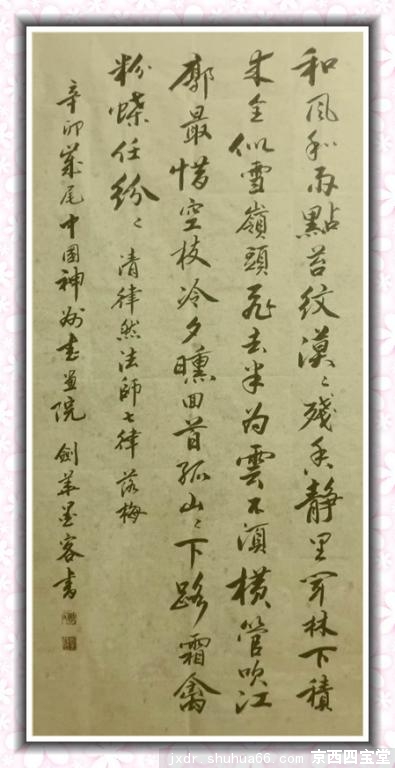 和風和雨點苔纹漠〻殘香靜里闻林下積
来全似雪嶺頭飛去半为雲不須横管吹江
廓最惜空枝冷夕曛回首孤山〻下路霜禽
粉蝶任纷〻 清律然法師七律 落梅
辛卯歲尾中國神州书画院 劍华墨客书
jxdr.shuhua66.com 京西四宝堂